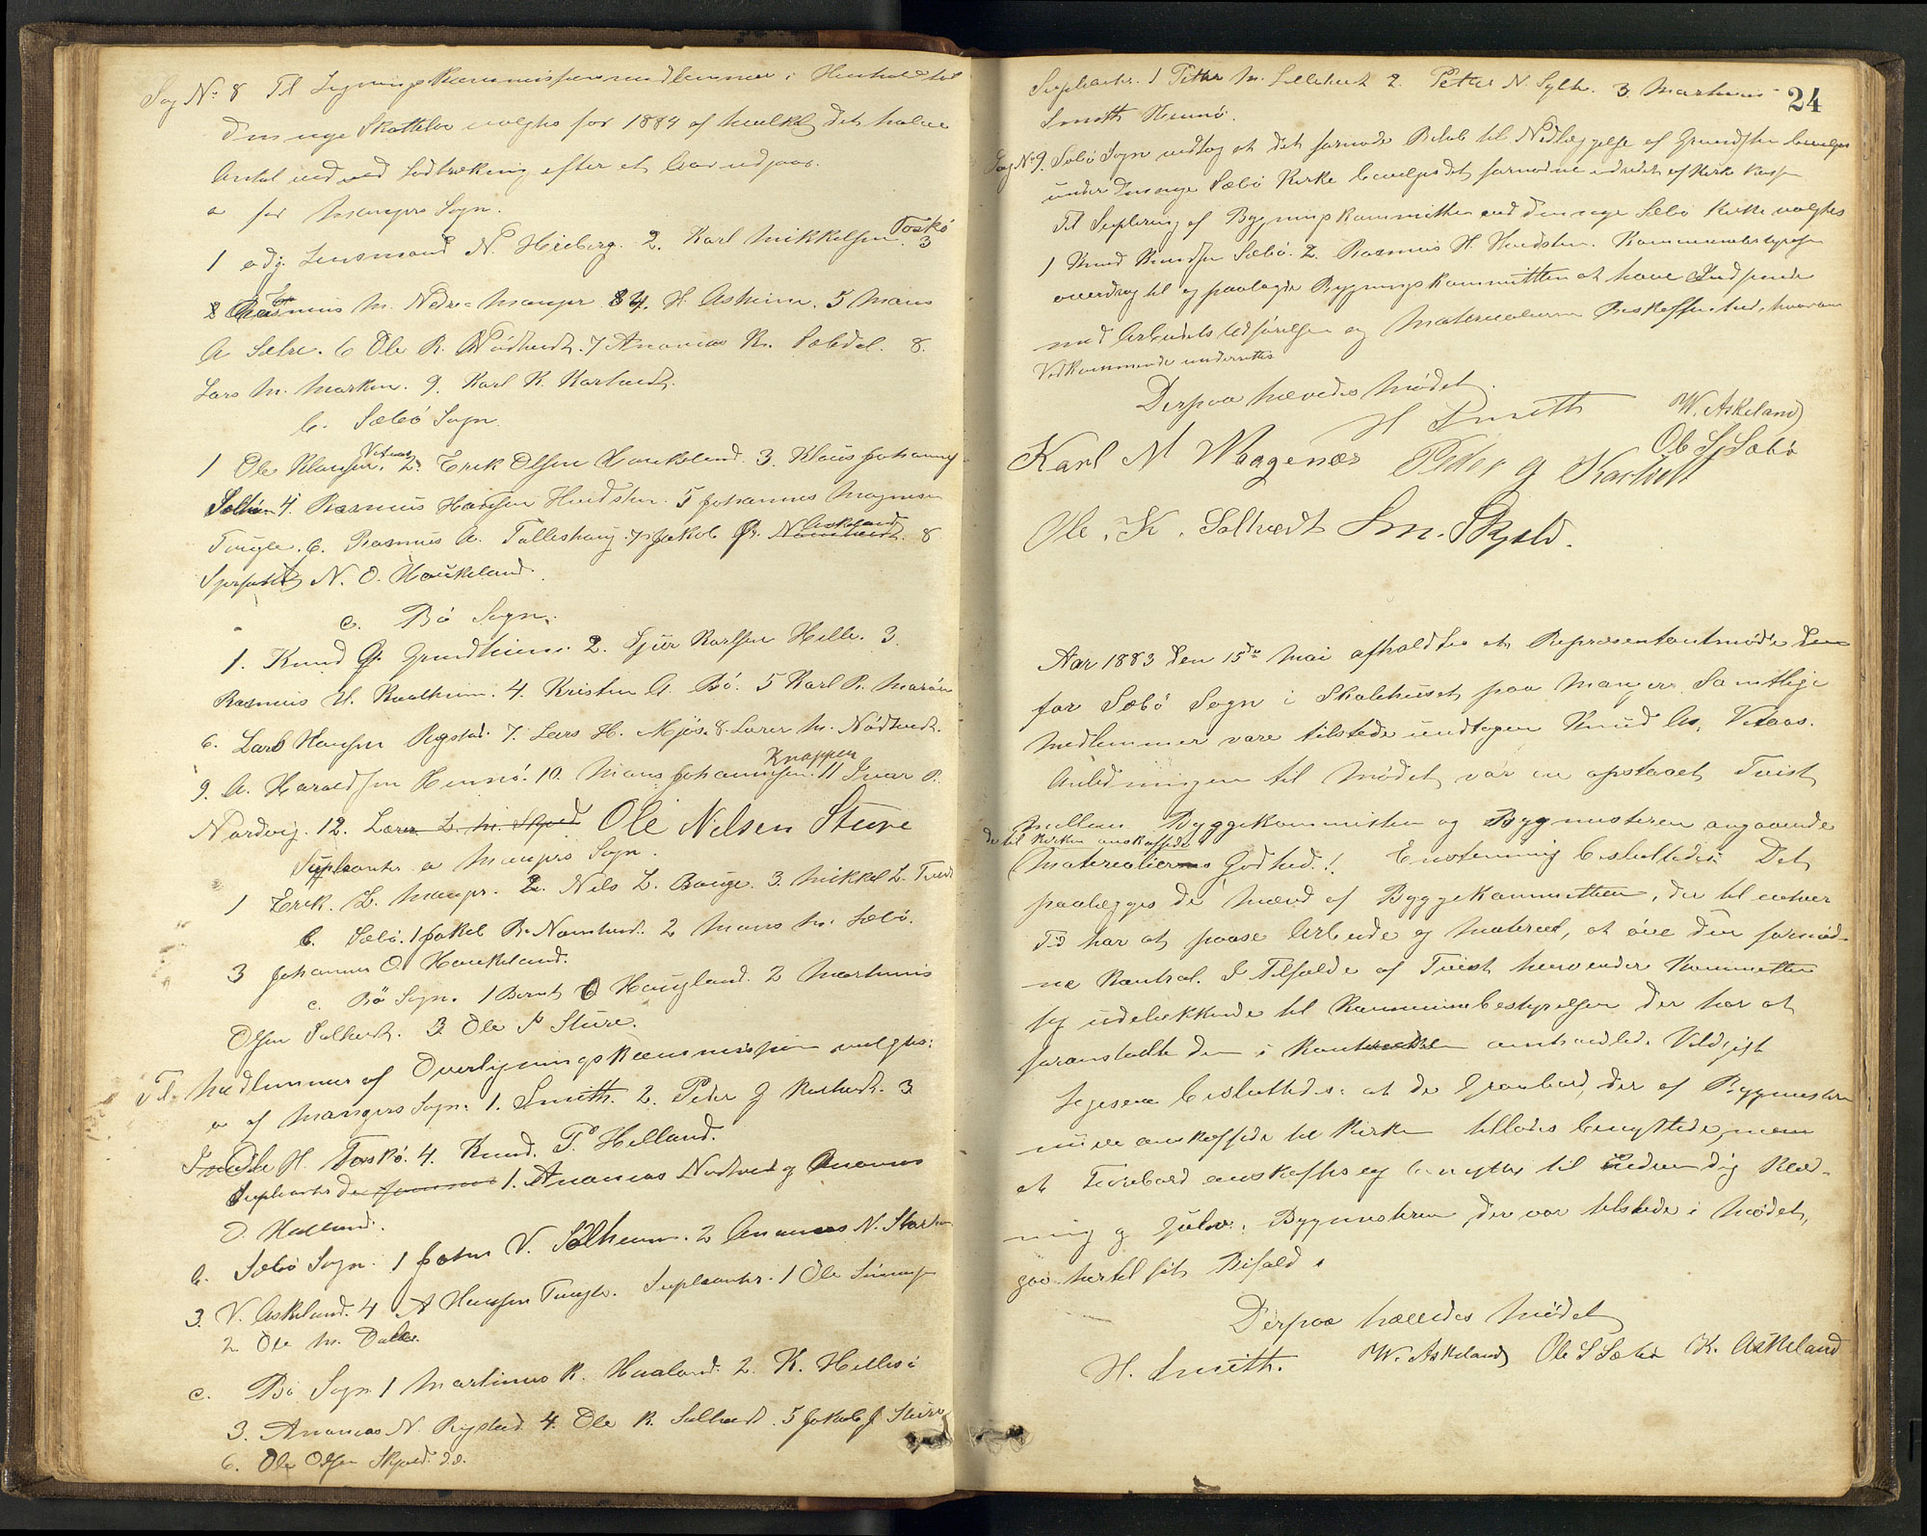 Sag No 8 Til Ligningskommissionsmedlemmer i Henhold til
den nye Skattelov valgtes for 1884 af hvilke det halve
Antal ved Lodtrækning efter et Aar udgaar.
a for Mangers Sogn.
1 Lensmand N. Heiberg. 2. Karl Mikkelsen Toskø 3
Rasmus M. Nedre Manger 4. H. Askeim. 5 Mans
A Sætre. 6 Ole R. Nødtvedt. 7 Ananias R. Sæbdal. 8.
Lars M. Marken. 9. Karl K. Kartvedt.
b. Sæbø Sogn
1 Ole Klausen Vetaas 2. Erik Olsen Haukeland. 3. Klaus Johannes
4. Rasmus Hansen Hindsten. 5 Johannes Magnesen
Tveyte. 6. Rasmus A. Talleshaug. 7 Jakob Askeland 8
N. O. Haukeland.
c. Bø Sogn.
1. Knud G. Grundheim. 2. Sjur Karlsen Helle. 3.
Rasmus H. Kvalheim. 4. Kristen A. Bø. 5 Karl R. Marøen
6. Lars Hansen Rystad. 7. Lars H. Mjøs. 8. Lærer M. Nødtvedt.
9. A. Haraldsen Hennø. 10. Mans Johannesen Knappen 11 Ivar P.
Nordvig. 12. Lærer L. M. Skjold Ole Nilsen Sture
Supleanter a Mangers Sogn.
1 Erik L. Manger. 2. Nils L. Bauge. 3. Mikkel L. Tveit
b. Sæbø. 1 Jakob B. Namtvedt. 2 Mans M. Sæbø.
3 Johannes O. Haukeland.
c. Bø Sogn. 1 Bernt O Haugland. 2 Martinus
Olsen Solhvedt. 3. Ole P Sture.
Til Medlemmer af Overligningskommissionen valgtes:
a af Mangers Sogn: 1. Smith. 2. Peder J Kartvedt. 3
H. Toskø. 4. Knud T. Helland.
Supleanter 1. Ananias Nødtvedt og Ananias
O. Helland.
b. Sæbø Sogn. 1 Johs V. Solheim. 2 Ananias N.
3. V. Askeland. 4 A Hansen Tveyte. Supleanter. 1 Ole Simonsen
2. Ole M. Dale.
c. Bø Sogn 1 Martinus R. Husland. 2. K. Hellesø
3. Ananias N. Rystad 4. Ole K. Solhvedt. 5 Jakob J. Sture
6. Ole Olsen Skjold.
24
Supleanter. 1 Peter M. 2. Peter N. Sylte. 3. Martinus
Smith Hennø.
Sag No 9. Sæbø Sogn vedtog at det fornødne Beløb til Nedlæggelse af Grundsten bevilges
under den nye Sæbø Kirke af Kirkekassen
Til Suplering af Bygningskommitteen ved den nye Sæbø Kirke valgtes
1 Knud Knudsen Sæbø. 2. Rasmus H. Hindsten. Kommunebestyrelsen
overdrog til og paalagde Bygningskommitteen at have Indseende
med Arbeidets Udførelse og Materialernes Beskaffenhed, hvorom
Vedkommende underrettes
Derpaa hævedes Mødet.
H Smith W. Askeland
Karl N Waagenæs Peder J Kartvedt Ole S Sæbø
Ole. K. Solhvedt L m. Skjold.
Aar 1883 den 15de Mai afholdtes et Repræsentantmøde
for Sæbø Sogn i Skolehuset paa Manger. Samtlige
Medlemmer vare tilstede undtagen Knud As. Vetaas.
Anledningen til Mødet var en opstaaet Tvist
mellem Byggekommitteen og Bygmesteren angaaende
de til Kirken anskaffede
Materialiers Godhed. Enstemmig besluttedes: Det
paalægges de Mænd af Byggekommitteen, der til enhver
Tid har at paase Arbeide og Material, at øve den fornød-
ne Kontrol. I Tilfælde af Tvist henvender Kommitteen
sig udelukkende til Kommunebestyrelsen der har at
foranstalte den i Kontrakten omhandlede Voldgift
Ligesaa besluttedes: at de Granbord, der af Bygmesteren
ere anskaffede til Kirken tillades benyttede, men
at Furubord anskaffes og benyttes til udvendig Klæd-
ning og Gulv. Bygmesteren, der var tilstede i Mødet,
gav hertil sit Bifald.
Derpaa hævedes Mødet
H. Smith. W. Askeland Ole S Sæbø K. Askeland